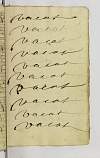 vacat
vacat
vacat
vacat
vacat
vacat
vacat
vacat
vacat
vacat